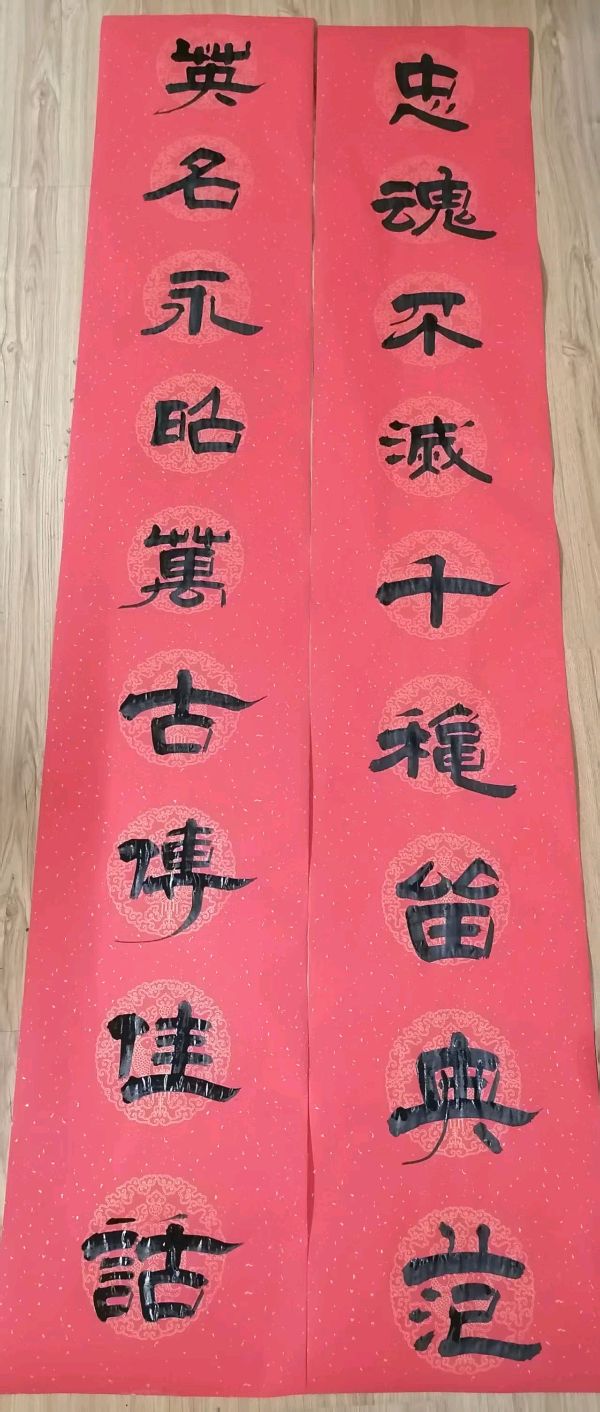 忠魂不滅千穐留典范
英名永昭萬古傳佳話